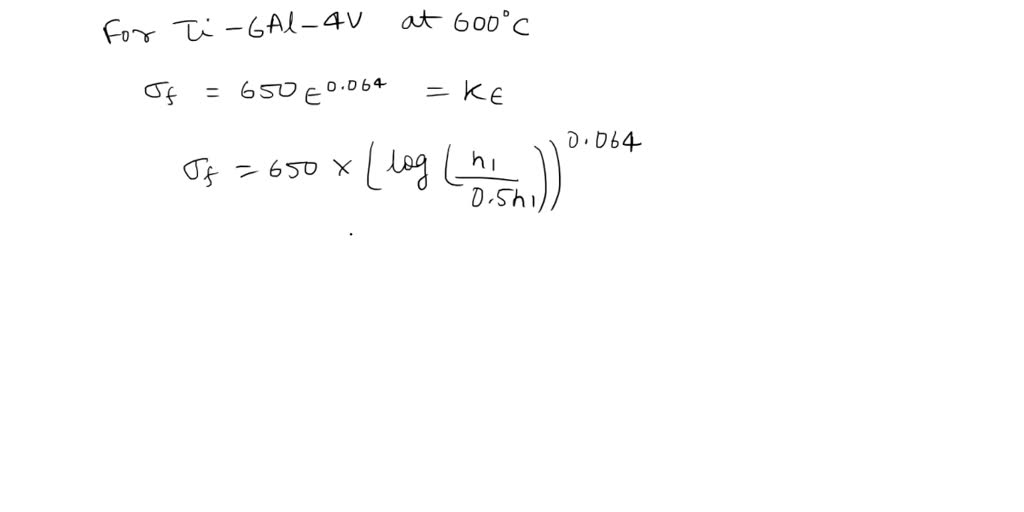 For Ti-6Al-4V at 600°C
σf = 650 ε^0.064 = Kε
σf = 650 × (log (h1/0.5h1))^0.064